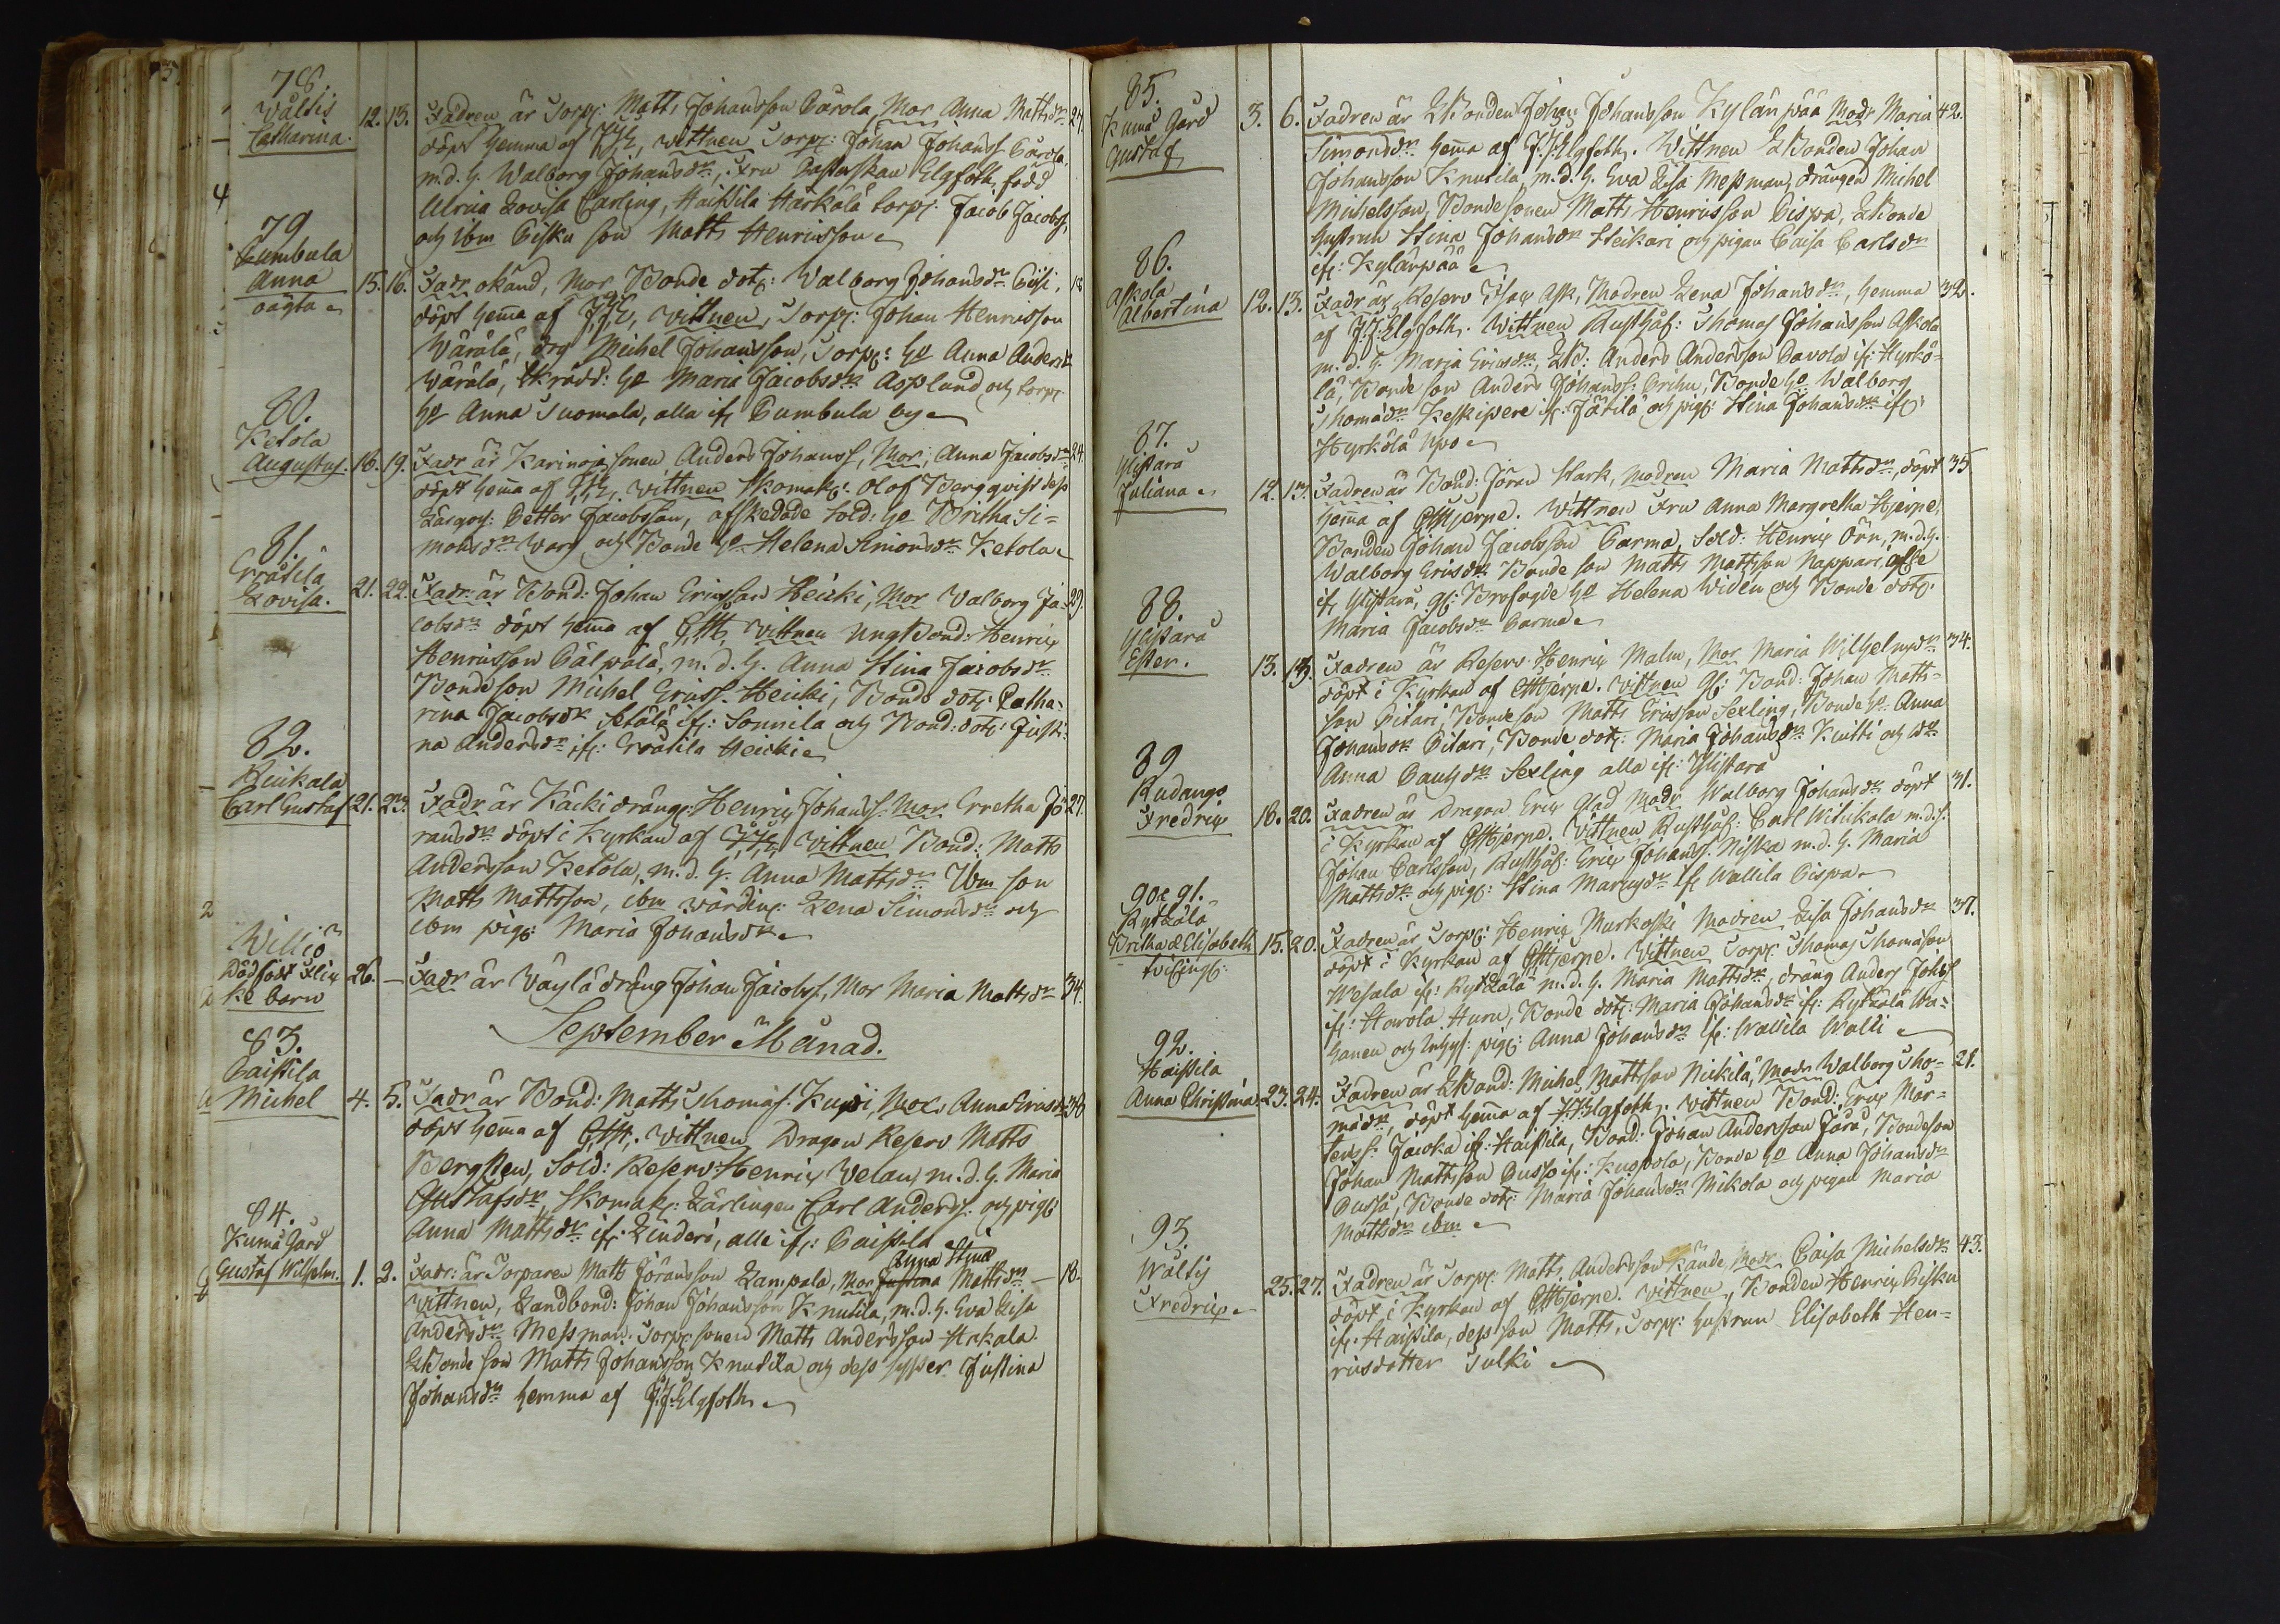 78.
Wältis
Catharina. 12. 13. Fadren är Torp: Matts Johansson Carola, Mor Anna Mattsdr 27.
döpt hemma af JJE, wittnen Torp: Johan Johanss. Carola,
m. d. h. Walborg Johansdr, Fru Pastorskan Elgfoth, född
Ulrica Lovisa Carling, Haissila Härkälä torp: Jacob Jacobss,
och ibm Pisku son Matts Henricsson
79
Cumbula
Anna 15. 16. Fadr okänd, Mor Bonde dotr: Walborg Johansdr 18
oägta döpt hema af JJE, wittnen, Torp: Johan Henricsson
Wärälä, drg Michel Johansson, Torp: ho Anna Andersdr
Wärälä, Skrädd: ho Maria Jacobsdr Asplund och torp:
ho Anna Suomala, alla ifr Cumbula by
80.
Ketola
Augustus. 18. 19. Fadr är Karinoja sonen Anders Johanss, Mor, Anna Jacobsdr 24.
döpt hema af JJE. wittnen Skomak: Olof Bergqvist dess
Lärgos: Petter Jacobsson, afskedade Sold: ho Britha Si=
monsdr Warg och Bonde ho Helena Simonsdr Ketola
81.
Lovisa. 21. 22. Fadr: är Bond: Johan Ericsson Heicki, Mor Valborg Ja= 29.
cobsdr döpt hema af wittnen Ungbond: Henric
Henricsson Pälpälä, m. d. h. Anna Stina Jacobsdr
Bondeson Michel Ericss. Heicki, Bonde dotr: Catha=
rina Jacobsdr Setälä ifr: Sonnila och Bond: dotr: Justi=
na Andersdr ifr: Heicki
82.
Reickala
Carl Gustaf 21. 23. Fadr är Käcki dräng: Henric Johanss. Mor Gretha Jö 27.
ransdr döpt i Kyrkan af JJE wittnen Bond: Matts
Andersson Ketola, m. d. h. Anna Mattsdr Ibm son
Matts Mattsson, ibm wärdin: Lena Simonsdr och
ibm pig: Maria Johansdr
Williö
Dödfödt Flic
ke barn 26. — Fadr är Wäylä dräng Johan Jacobss, Mor Maria Mattsdr 34.
September Månad.
83.
Caissila
Michel 4. 5. Fadr är Bond: Matts Thomas: Kupi, Mor Anna Ericsdr 38
döpt hema af wittnen Dragon Reserv Matts
Bergsten, Sold: Reserv: Henric Velan, m. d. h. Maria
Gustafsdr, Skomak: Lärlingen Carl Anderss: och pig:
Anna Mattsdr ifr: Linderö, alle ifr: Caissila
84.
Kumo Gård Anna Stina
Gustaf Wilhelm. 1. 2. Fadr: är Torparen Matts Jöransson Lampola, Mor Justina Mattsdr — 18.
wittnen, Landbond: Johan Johansson Knutila, m. d. h. Eva Lisa
Andersdr Messman. Torp: sonen Matts Andersson Hakala.
LBonde son Matts Johansson Knutila och dess syster Justina
Johansdr hemma af J:J:Elgfoth
85.
Kumo Gård
Gustaf 3. 6. Fadren är LBonden Johan Johansson Kylänpää Modr Maria 42.
Simonsdr hema af J:J:Elgfoth. Wittnen LBonden Johan
Johansson Knutila, m. d. h. Eva Lisa Messman, drängen Michel
Michelsson, Bonde sonen Matts Henricsson Pispa, LBonde
hustrun Stina Johansdr Heikari och pigan Caisa Carlsdr
ifr: Kylänpää
86.
Askola
Albertina 12. 13. Fadr är Reserv Isac Ask, Modren Lena Johansdr, hemma 32.
af J:J:Elgfoth. Wittnen Rusthåll: Thomas Johansson Askola
m. d. h. Maria Ericsdr, LB: Anders Andersson Davola ifr: Hyrkö=
lä, Bonde son Anders Johanss: Prihu, Bonde ho Walborg
Thomasdr Keskipere ifr: Jätilä och pig: Stina Johansdr ifr:
Hyrkölä
87.
Ylistarå
Juliana 12. 13. Fadren är Bond: Jöran Stark, modren Maria Mattsdr, döpt 35
hema af CHHjerpe. Wittnen Fru Anna Margretha Hjerpe,
Bonden Johan Jacobsson Parma, Sold: Henric Örn, m. d. h.
Walborg Ericsdr Bonde son Matts Mattsson Nappari, alle
ifr Ylistarå, Brofogde ho Helena Widén och Bonde dotr:
Maria Jacobsdr Parma
88.
Ylistarå
Ester. 13. 13. Fadren är Reserv: Henric Malm, Mor Maria Wilhelmsdr 34.
döpt i Kyrkan af CHHjerpe. wittnen Bond: Johan Matts=
son Pitari, Bondeson Matts Ericsson Sexling, Bonde ho Anna
Johansdr Pitari, Bonde dotr: Maria Johansdr Kuitti och dr
Anna Paulsdr Sexling alla ifr: Ylistarå
89
Rudango
Fredric 18. 20. Fadren är Dragon Eric Glad Modr Walborg Johansdr döpt 31.
i Kyrkan af CHHjerpe. Wittnen Rusthåll: Carl Witikala m. d. h.
Johan Carlsson, Rusthåll: Eric Johanss. Niska m. d. h. Maria
Mattsdr och pig: Stina Maricsdr ifr Wallila Pispa
90 & 91.
Rytkälä
Britha & Elisabeth 15. 20. Fadren är Torp: Henric Murkaski Modren Lisa Johansdr 37.
tvilling: döpt i Kyrkan af CHHjerpe. Wittnen Torp: Thomas Thomasson
Wesala ifr: Rytkälä m. d. h. Maria Mattsdr, dräng Anders Johss
ifr: Harola Huru, Bonde dotr: Maria Johansdr ifr: Rytkälä Wa=
hanen och Inhys: pig: Anna Johansdr ifr: Wallila Walli
92.
Haissila
Anna Christina 23. 24. Fadren är LBond: Michel Mattsson Nickilä, Modr Walborg Tho= 21.
masdr, döpt hema af J:J:Elgfoth. wittnen Bond: Eric Mår=
tenss: Jacoka ifr: Haissila, Bond: Johan Andersson Jara, Bondeson
Johan Mattsson Pusso ifr: Kuoppola, Bonde ho Anna Johansdr
Pussa, Bonde dotr: Maria Johansdr Mikola och pigan Maria
Mattsdr ibm
93.
Wältis
Fredric 25. 27. Fadren är Torp: Matts Andersson Kände, Modr: Caisa Michelsdr 43.
döpt i Kyrkan af CHHjerpe. wittnen, Bonden Henric Pisku
ifr: Haissila, dess son Matts, Torp: hustrun Elisabeth Hen=
ricsdotter Tulki